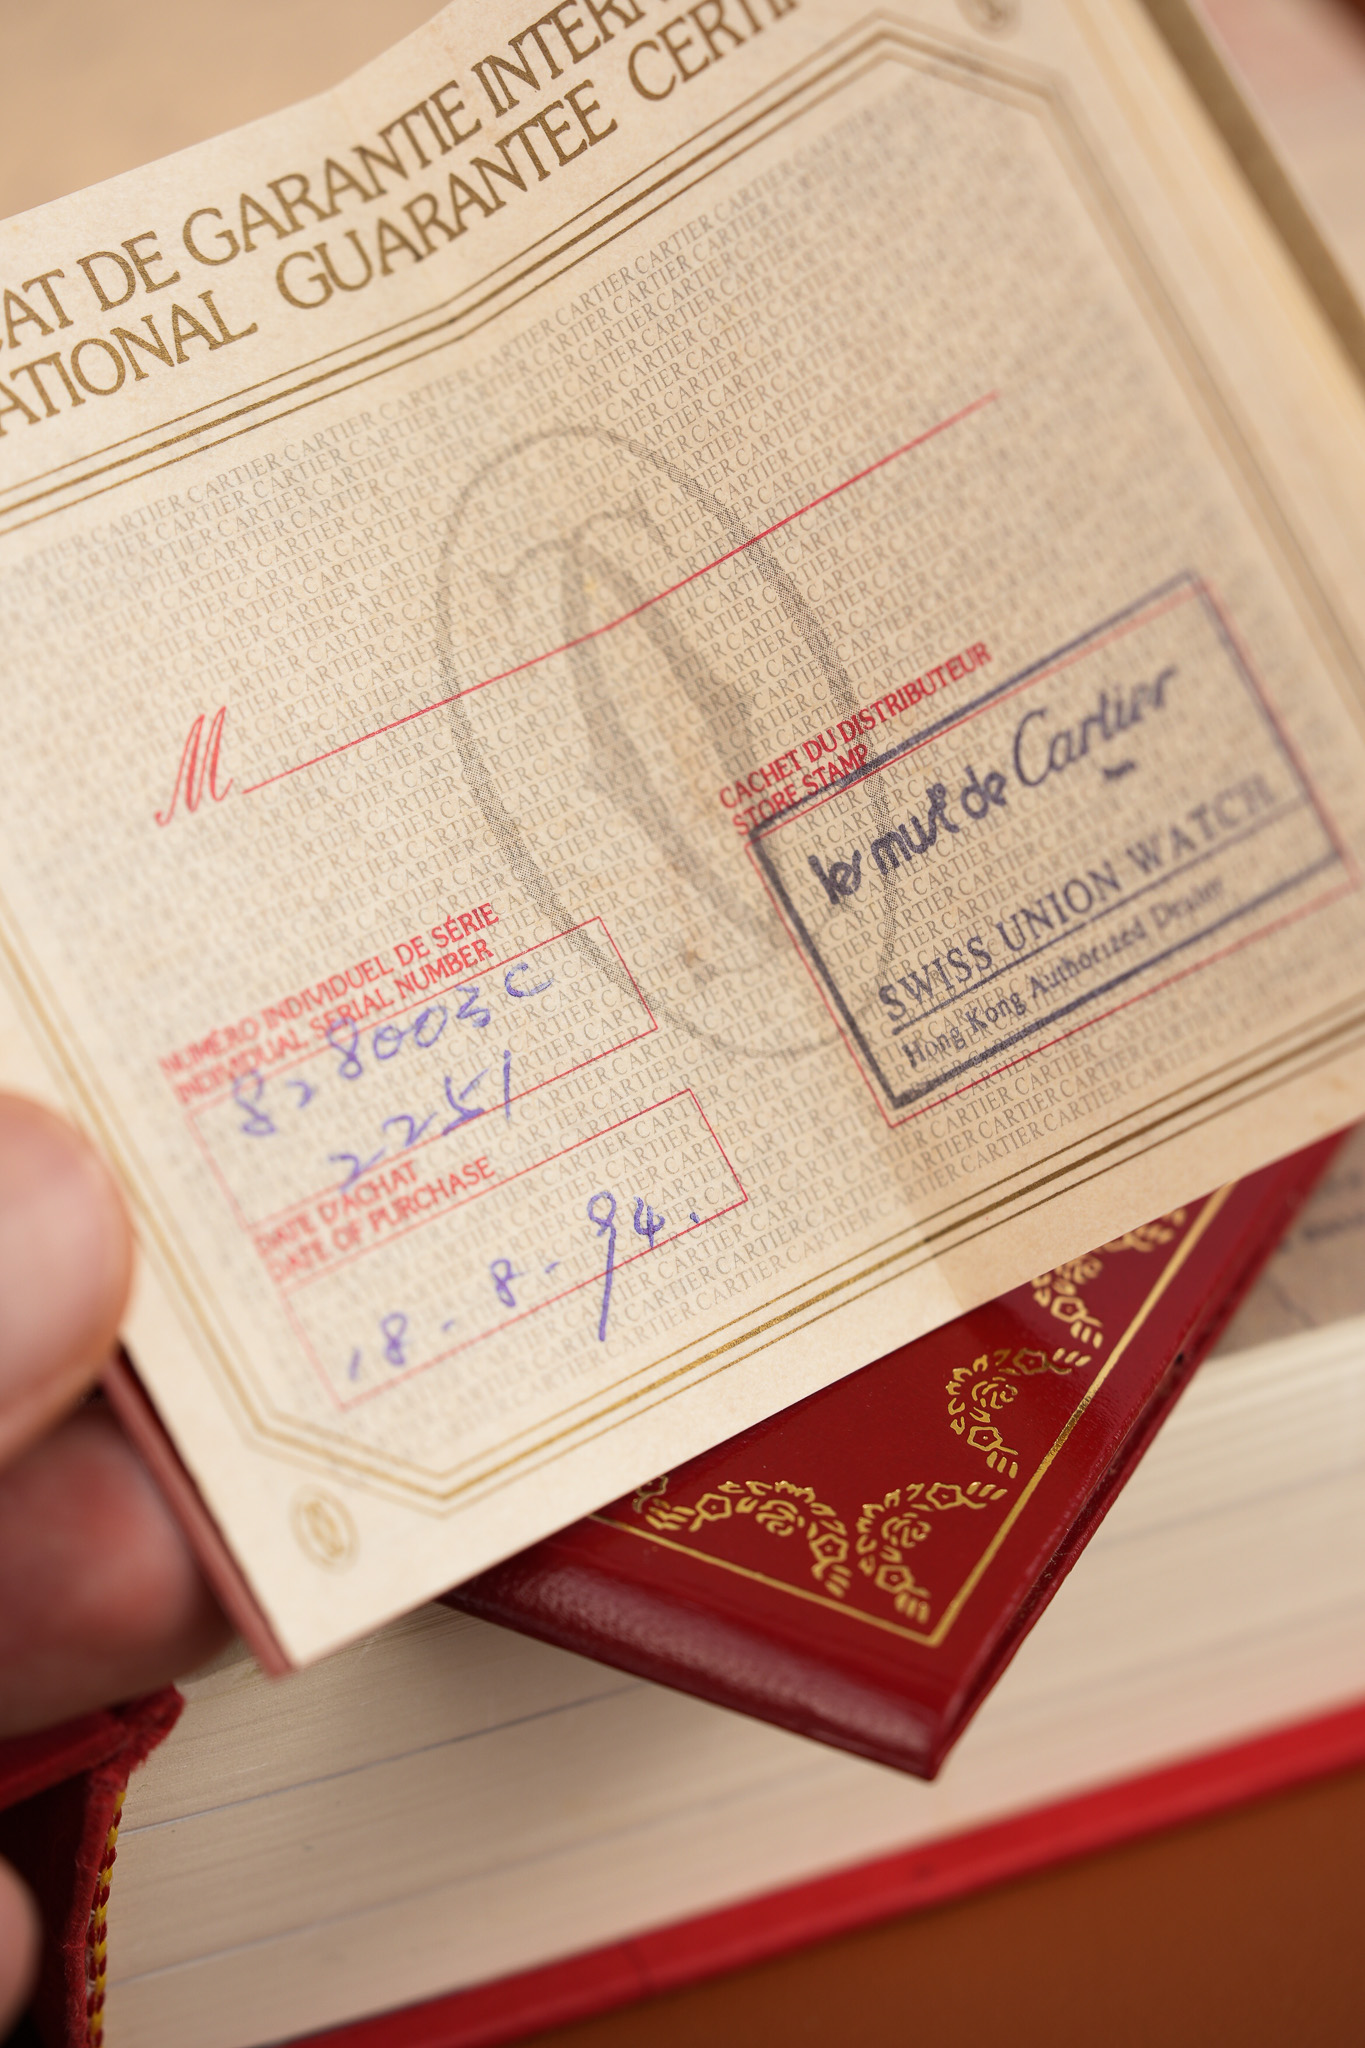 CAT DE GARANTIE INTERN
ATIONAL GUARANTEE CERTI
M
CACHET DU DISTRIBUTEUR
STORE STAMP
les must de Cartier
Paris
SWISS UNION WATCH
Hong Kong Authorized Dealer
NUMÉRO INDIVIDUEL DE SÉRIE
INDIVIDUAL SERIAL NUMBER
88003C
2251
DATE D'ACHAT
DATE OF PURCHASE
18-8-94.
CARTIER CARTIER CARTIER CARTIER CARTIER